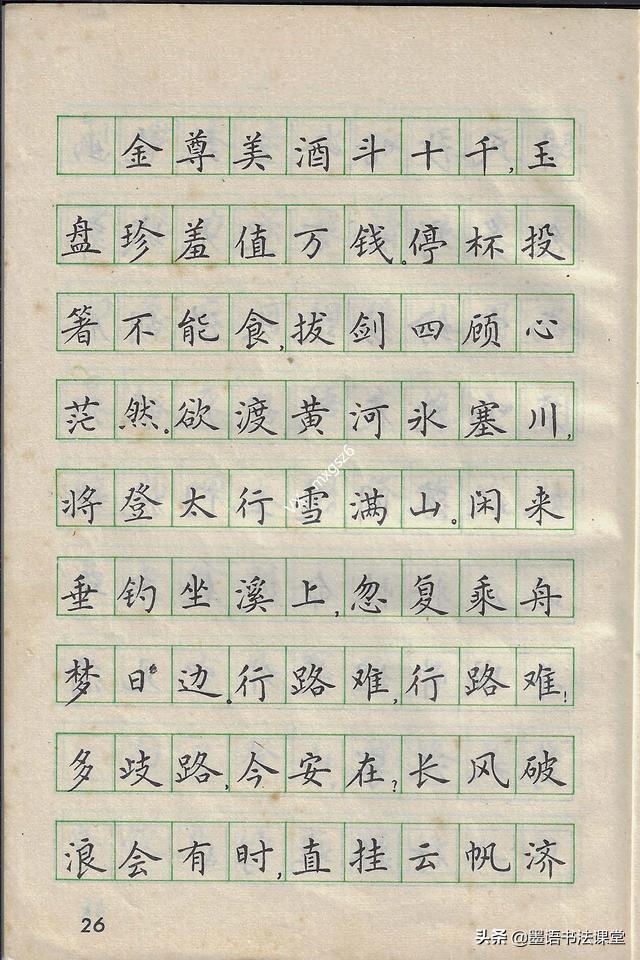 金尊美酒斗十千,玉
盘珍羞值万钱。停杯投
箸不能食,拔剑四顾心
茫然。欲渡黄河氷塞川,
将登太行雪满山。闲来
垂钓坐溪上,忽复乘舟
梦日边。行路难,行路难!
多歧路,今安在?长风破
浪会有时,直挂云帆济
26
头条 @墨语书法课堂